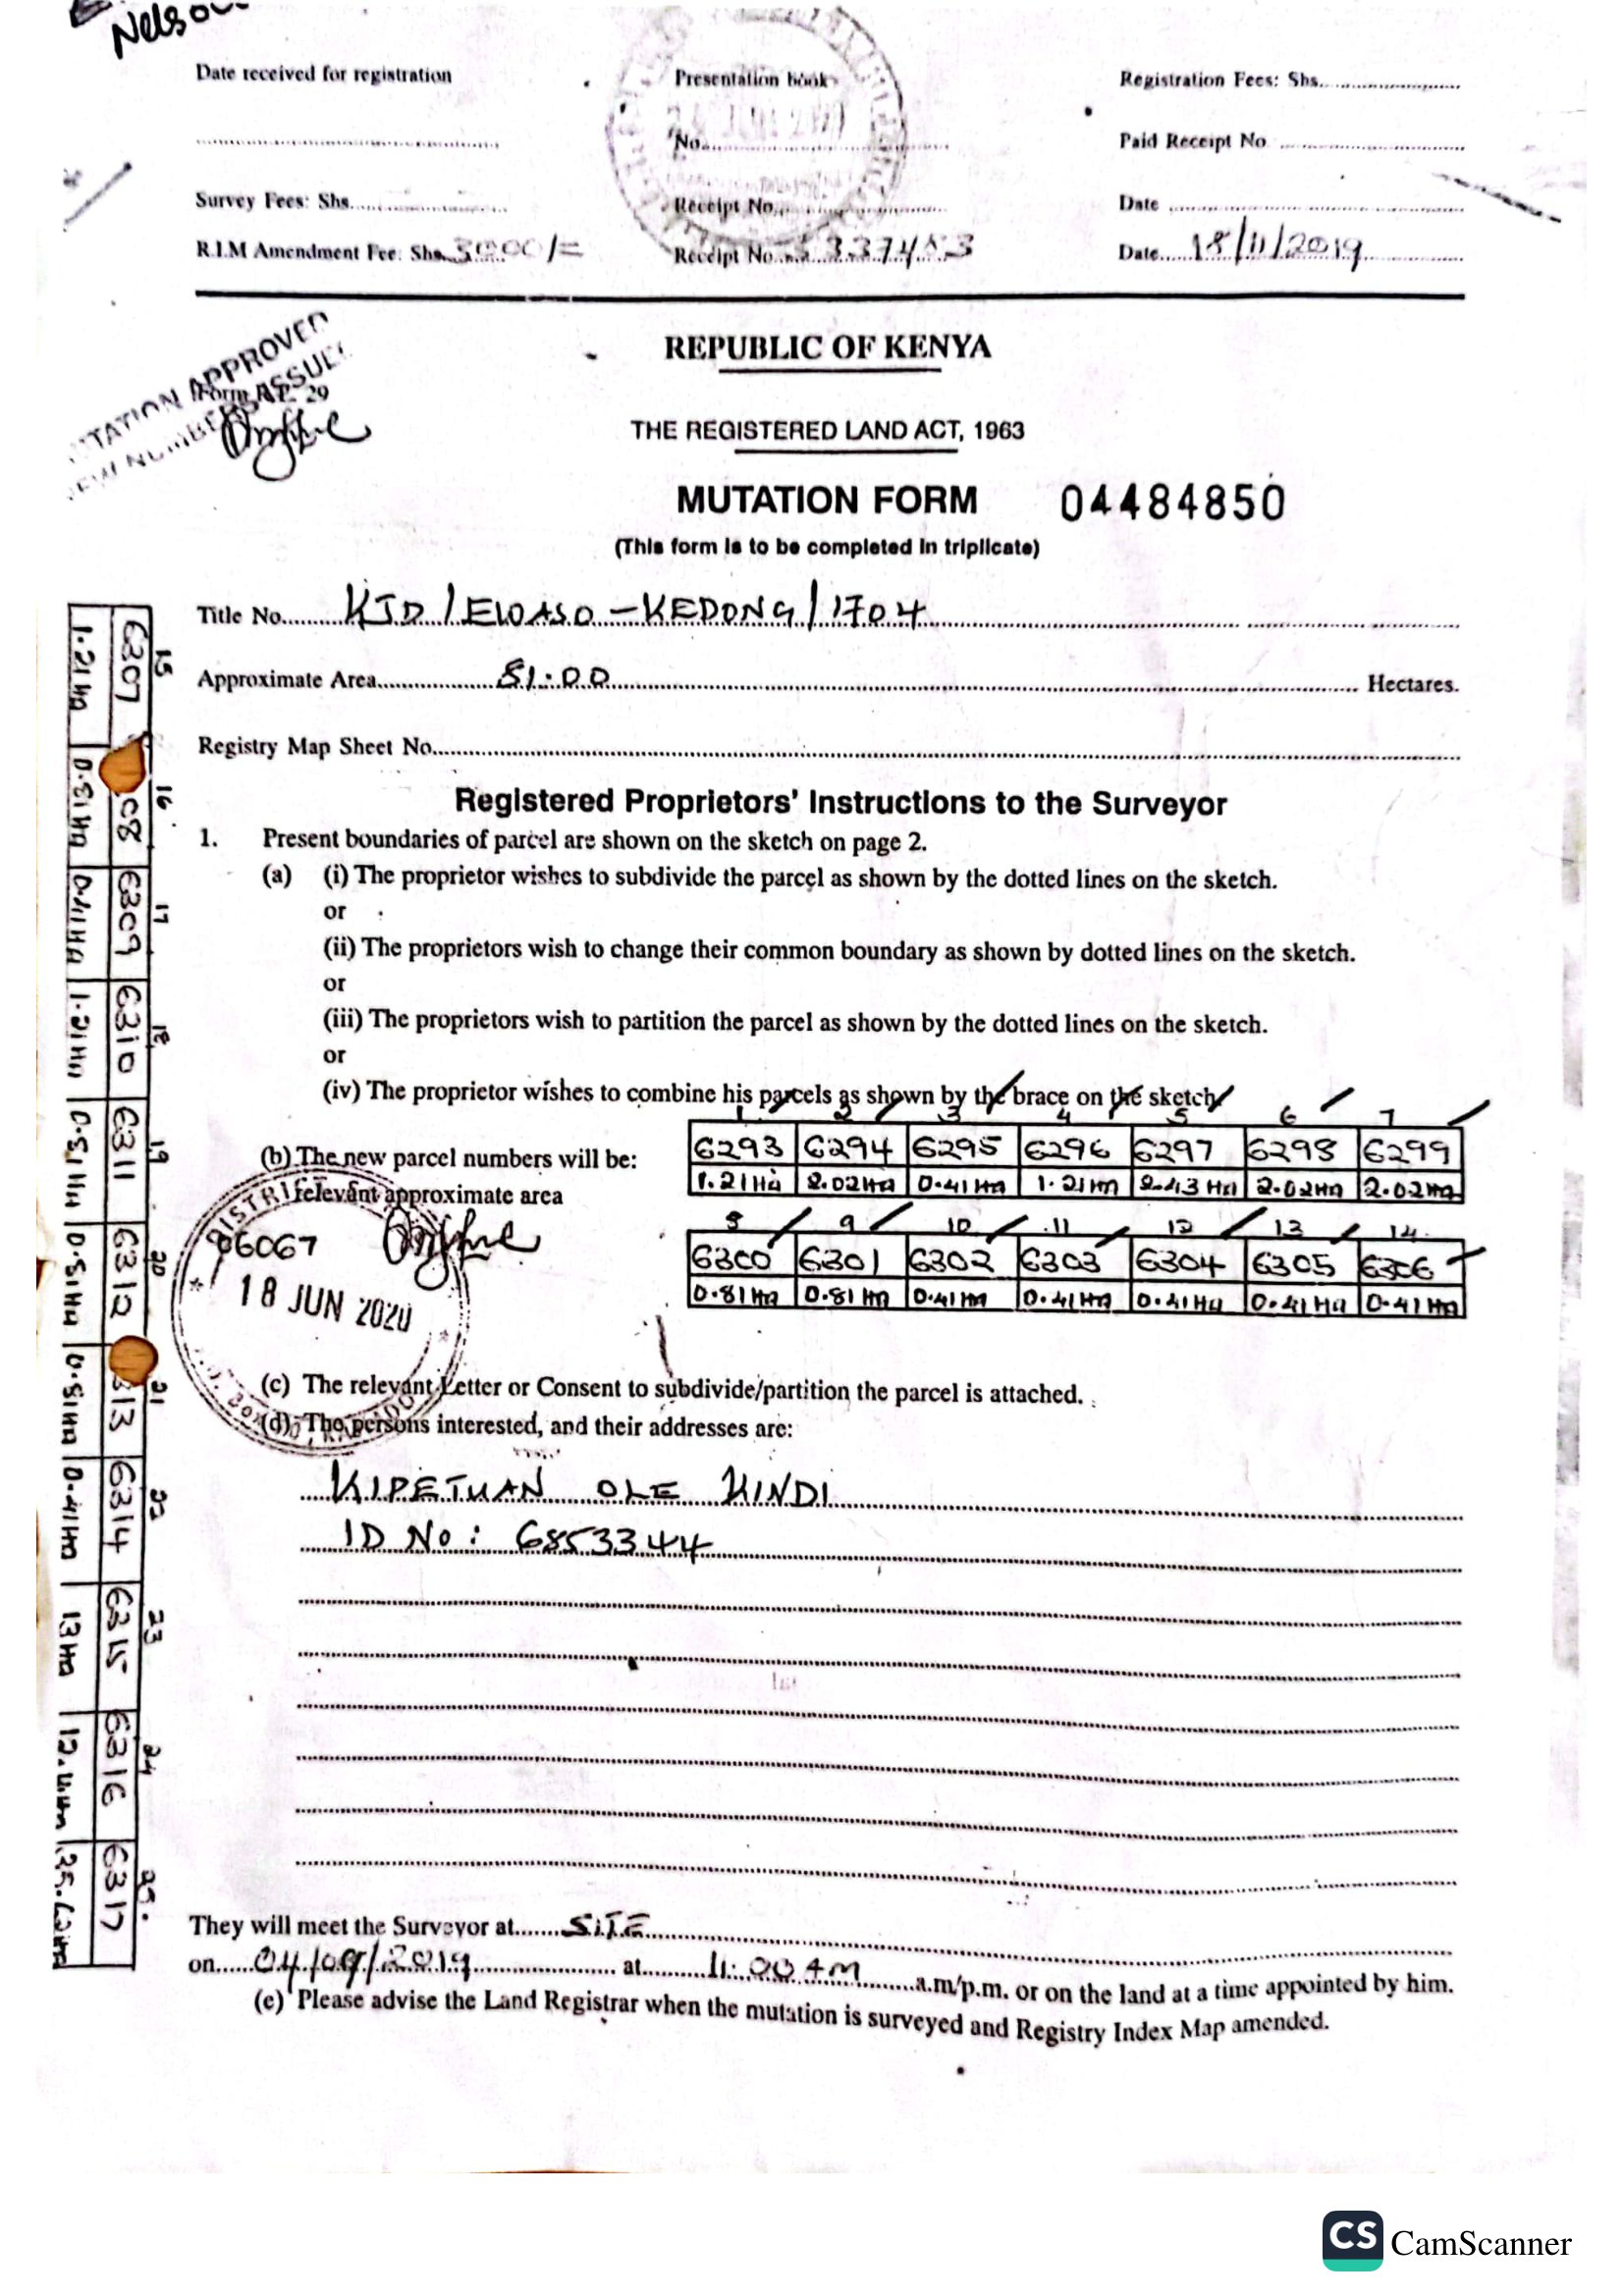 Nelson
Date received for registration
Presentation book
Registration Fees: Shs.
No.
Paid Receipt No
Survey Fees: Shs.
Receipt No.
Date
R.I.M Amendment Fee: Shs. 5000/=
Receipt No.
Date 18/11/2019
REPUBLIC OF KENYA
MUTATION APPROVED
NEW NUMBERS ISSUED
Form R.L. 29
THE REGISTERED LAND ACT, 1963
MUTATION FORM 04484850
(This form is to be completed in triplicate)
Title No. KJD/EWASO-KEDONG/1704
Approximate Area 81.00 Hectares.
Registry Map Sheet No.
Registered Proprietors' Instructions to the Surveyor
1. Present boundaries of parcel are shown on the sketch on page 2.
(a) (i) The proprietor wishes to subdivide the parcel as shown by the dotted lines on the sketch.
or
(ii) The proprietors wish to change their common boundary as shown by dotted lines on the sketch.
or
(iii) The proprietors wish to partition the parcel as shown by the dotted lines on the sketch.
or
(iv) The proprietor wishes to combine his parcels as shown by the brace on the sketch
(b) The new parcel numbers will be:
relevant approximate area
1 2 3 4 5 6 7
6293 6294 6295 6296 6297 6298 6299
1.21Ha 2.02Ha 0.41Ha 1.21Ha 2.43Ha 2.02Ha 2.02Ha
8 9 10 11 12 13 14
6300 6301 6302 6303 6304 6305 6306
0.81Ha 0.81Ha 0.41Ha 0.41Ha 0.41Ha 0.41Ha 0.41Ha
06067
18 JUN 2020
(c) The relevant Letter or Consent to subdivide/partition the parcel is attached.
(d) The persons interested, and their addresses are:
KIPETUAN OLE KINDI
ID No: 6853344
They will meet the Surveyor at SITE
on 04/09/2019 at 11:00 AM a.m/p.m. or on the land at a time appointed by him.
(e) Please advise the Land Registrar when the mutation is surveyed and Registry Index Map amended.
15 16 17 18 19 20 21 22 23 24 25
6307 08 6309 6310 6311 6312 313 6314 6315 6316 6317
1.21Ha 0.81Ha 0.41Ha 1.21Ha 0.81Ha 0.81Ha 0.81Ha 0.41Ha 13Ha
CS CamScanner